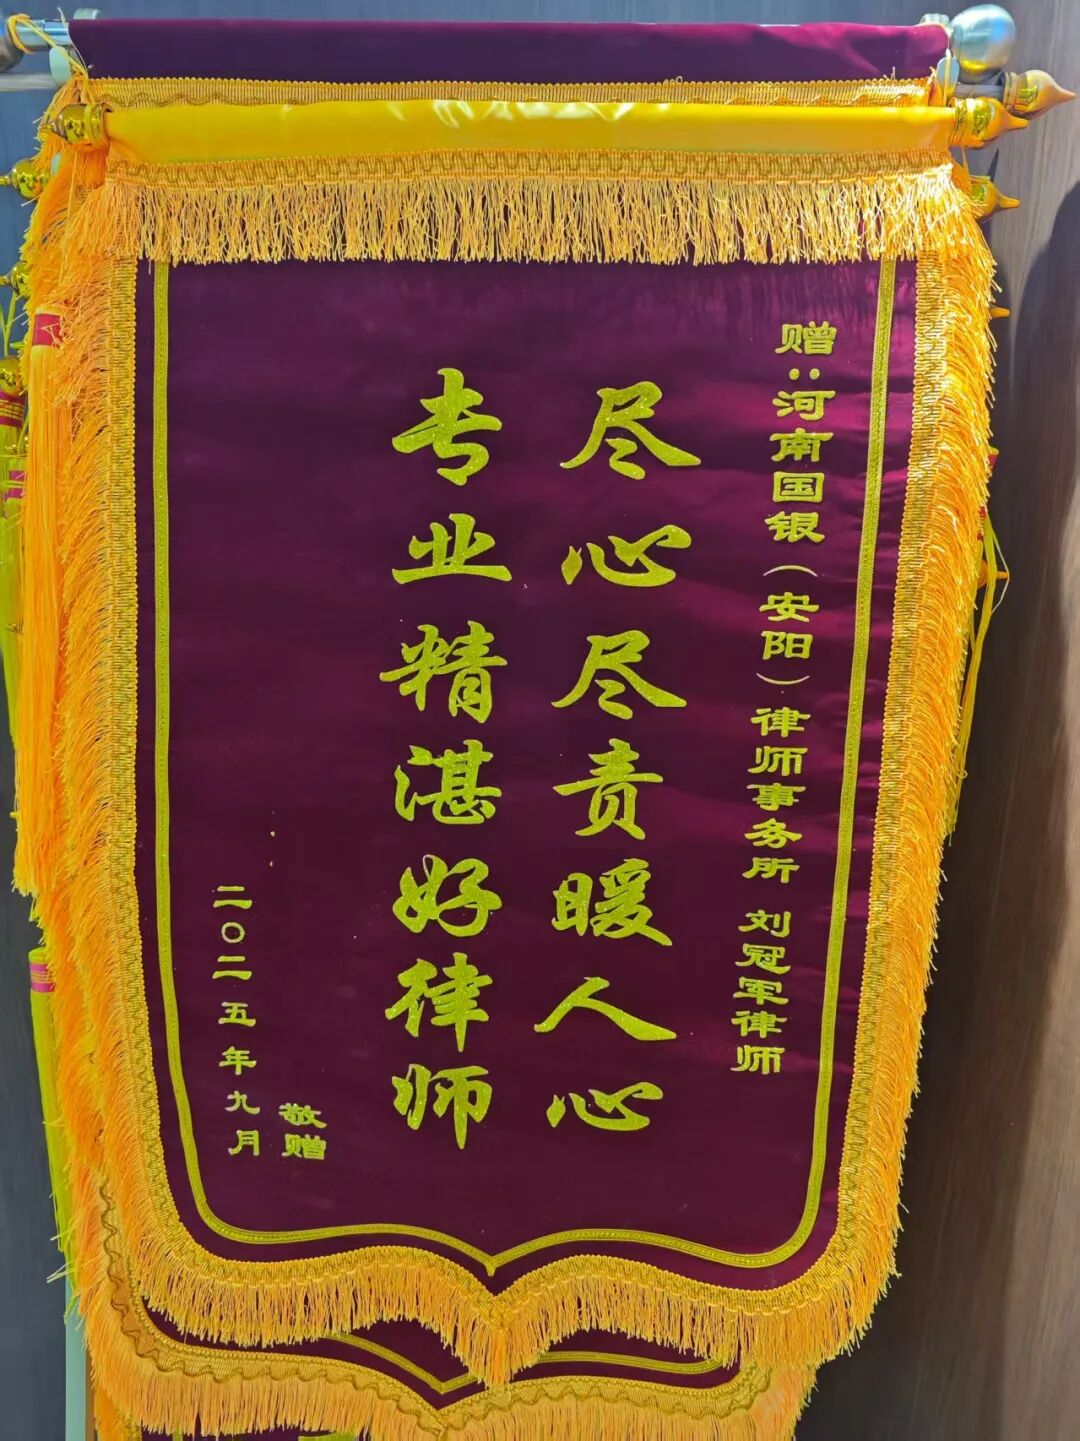 赠：河南国银（安阳）律师事务所 刘冠军律师
尽心尽责暖人心
专业精湛好律师
敬赠
二〇二五年九月